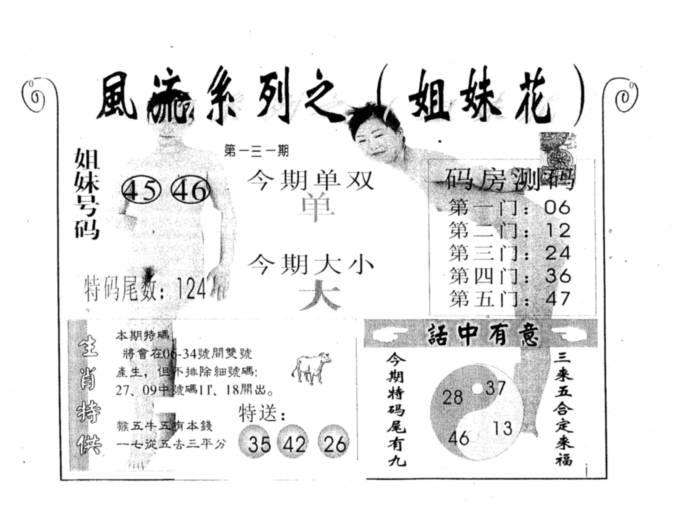 風流系列之（姐妹花）
第一三一期
姐妹号码
45 46
特码尾数：124
今期单双
单
今期大小
大
码房测码
第一门：06
第二门：12
第三门：24
第四门：36
第五门：47
生肖特供
本期特碼
將會在06-34號開雙號
產生，但不排除細號碼:
27、09中號碼11、18開出。
猴五牛五有本錢
一七從五去三平分
特送：
35 42 26
話中有意
今期特码尾有九
28 37
46 13
三来五合定来福